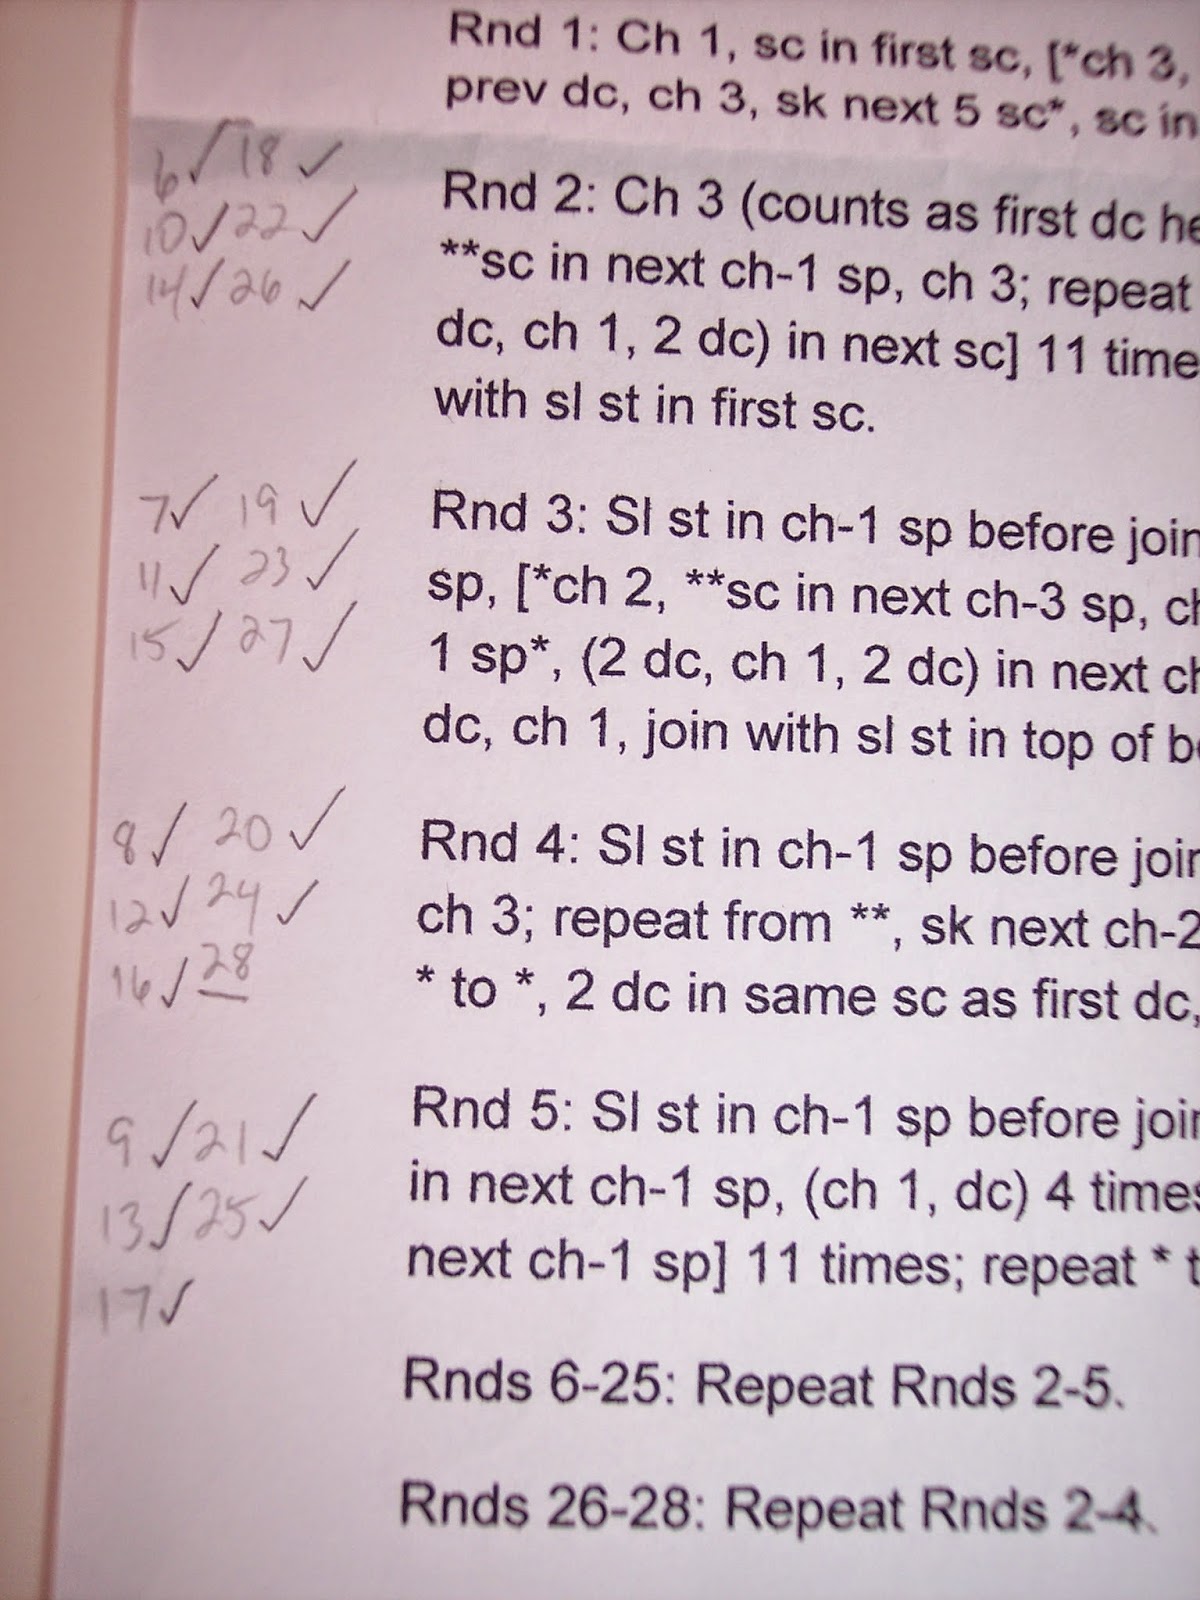 Rnd 1: Ch 1, sc in first sc, [*ch 3,
prev dc, ch 3, sk next 5 sc*, sc in
6 ✓ 18 ✓
10 ✓ 22 ✓
14 ✓ 26 ✓
Rnd 2: Ch 3 (counts as first dc he
**sc in next ch-1 sp, ch 3; repeat
dc, ch 1, 2 dc) in next sc] 11 time
with sl st in first sc.
7 ✓ 19 ✓
11 ✓ 23 ✓
15 ✓ 27 ✓
Rnd 3: Sl st in ch-1 sp before join
sp, [*ch 2, **sc in next ch-3 sp, ch
1 sp*, (2 dc, ch 1, 2 dc) in next ch
dc, ch 1, join with sl st in top of be
8 ✓ 20 ✓
12 ✓ 24 ✓
16 ✓ 28
Rnd 4: Sl st in ch-1 sp before join
ch 3; repeat from **, sk next ch-2
* to *, 2 dc in same sc as first dc,
9 ✓ 21 ✓
13 ✓ 25 ✓
17 ✓
Rnd 5: Sl st in ch-1 sp before join
in next ch-1 sp, (ch 1, dc) 4 times
next ch-1 sp] 11 times; repeat * t
Rnds 6-25: Repeat Rnds 2-5.
Rnds 26-28: Repeat Rnds 2-4.